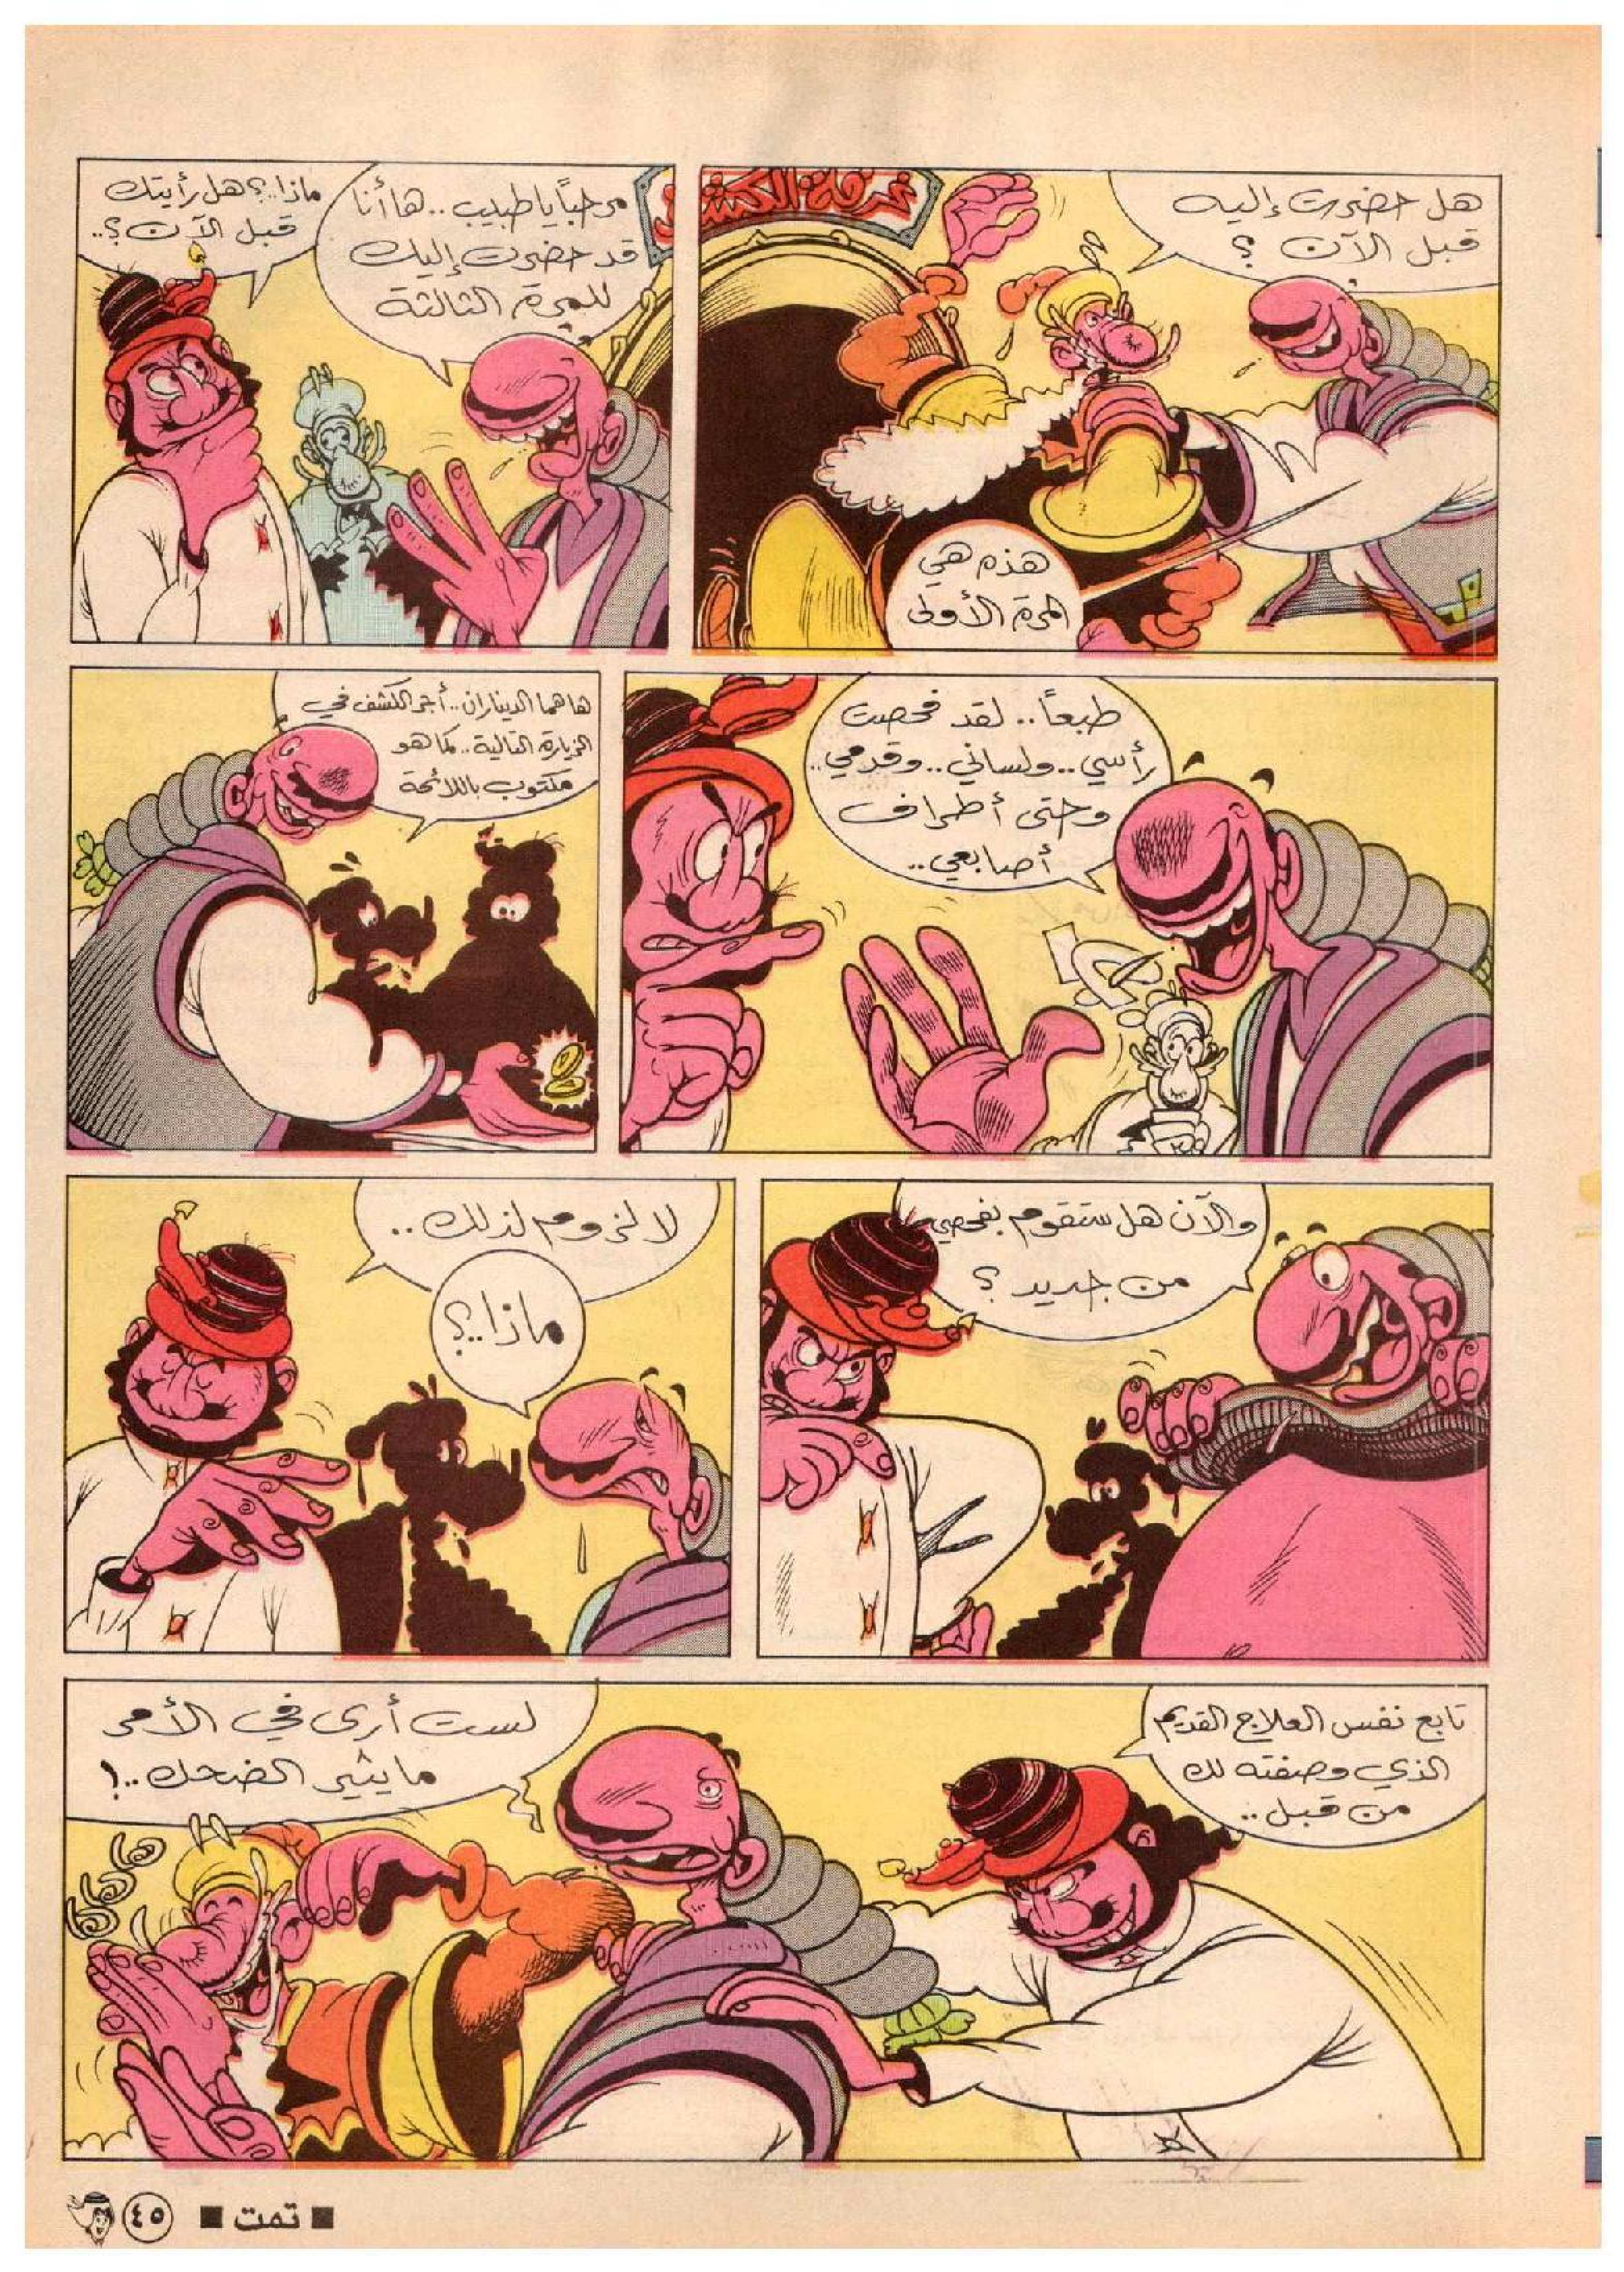 غرفة الكشف
هل حضرت إليه
قبل الآن ؟
هذه هي
المرة الأولى
مرحباً يا طبيب .. ها أنا
قد حضرت إليك
للمرة الثالثة
ماذا..؟ هل رأيتك
قبل الآن ؟..
طبعاً .. لقد فحصت
رأسي .. ولساني .. وقدمي ..
وحتى أطراف
أصابعي ..
ها هما الديناران .. أجر الكشف في
الزيارة التالية .. كما هو
مكتوب باللائحة
والآن هل ستقوم بفحصي
من جديد ؟
لا لزوم لذلك ..
ماذا..؟
تابع نفس العلاج القديم
الذي وصفته لك
من قبل ..
لست أرى في الأمر
ما يثير الضحك ..!
هاهاها
■ تمت ■
٤٥